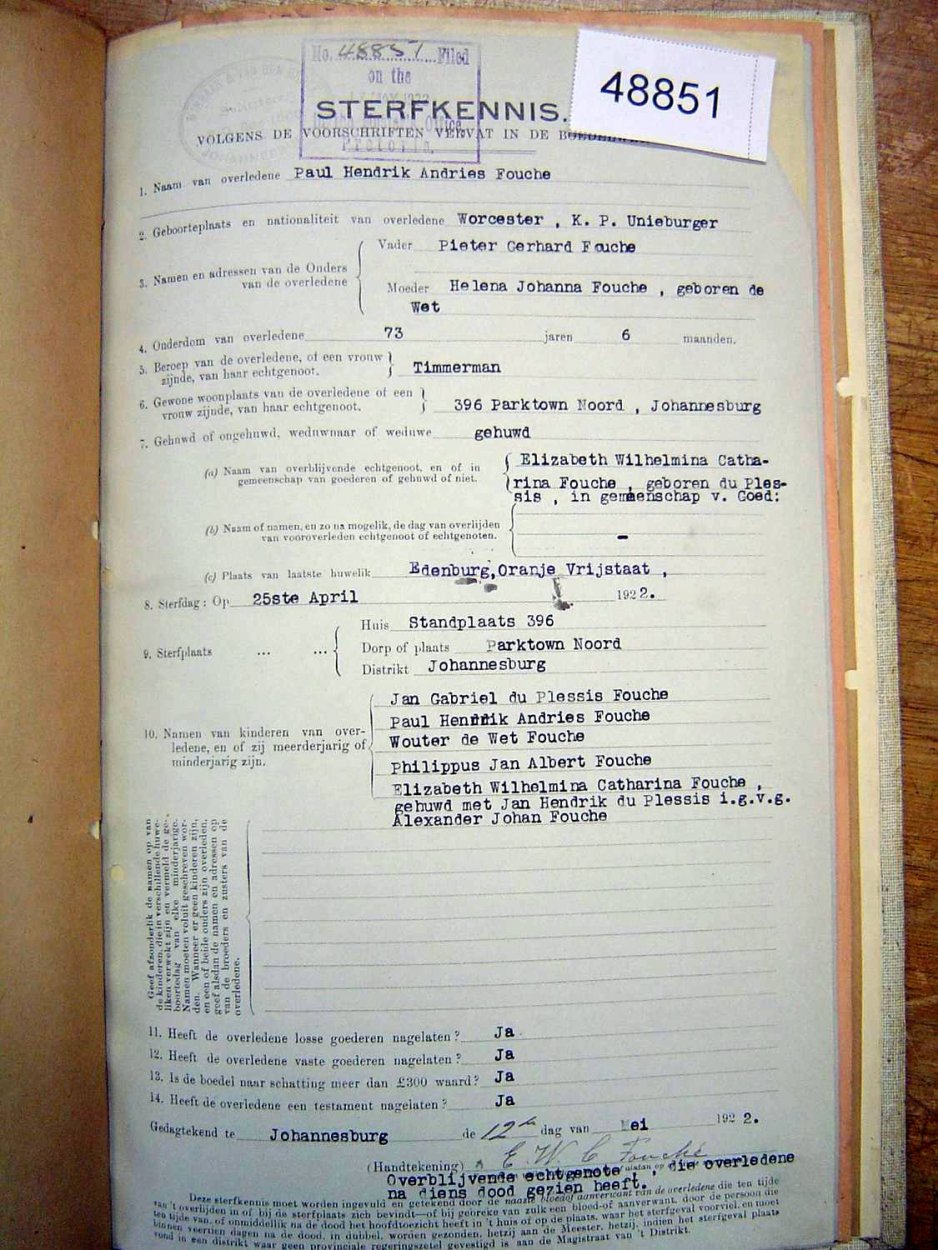 No. 48851 Filed
on the
Office
Pretoria.
48851
STERFKENNIS.
VOLGENS DE VOORSCHRIFTEN VERVAT IN DE
1. Naam van overledene Paul Hendrik Andries Fouche
2. Geboorteplaats en nationaliteit van overledene Worcester , K. P. Unieburger
3. Namen en adressen van de Ouders van de overledene
Vader Pieter Gerhard Fouche
Moeder Helena Johanna Fouche , geboren de
Wet
4. Onderdom van overledene 73 jaren 6 maanden.
5. Beroep van de overledene, of een vrouw
zijnde, van haar echtgenoot. Timmerman
6. Gewone woonplaats van de overledene of een
vrouw zijnde, van haar echtgenoot. 396 Parktown Noord , Johannesburg
7. Gehuwd of ongehuwd, weduwnaar of weduwe gehuwd
(a) Naam van overblijvende echtgenoot, en of in
gemeenschap van goederen of gehuwd of niet.
Elizabeth Wilhelmina Catha-
rina Fouche , geboren du Ples-
sis , in gemeenschap v. Goed:
(b) Naam of namen, en zo na mogelik, de dag van overlijden
van vooroverleden echtgenoot of echtgenoten. -
(c) Plaats van laatste huwelik Edenburg,Oranje Vrijstaat ,
8. Sterfdag: Op 25ste April 1922.
9. Sterfplaats ... ...
Huis Standplaats 396
Dorp of plaats Parktown Noord
Distrikt Johannesburg
10. Namen van kinderen van over-
ledene, en of zij meerderjarig of
minderjarig zijn.
Jan Gabriel du Plessis Fouche
Paul Hendrik Andries Fouche
Wouter de Wet Fouche
Philippus Jan Albert Fouche
Elizabeth Wilhelmina Catharina Fouche ,
gehuwd met Jan Hendrik du Plessis i.g.v.g.
Alexander Johan Fouche
Geef afzonderlik de namen op van
de kinderen, die in verschillende huwe-
liken verwekt zijn en vermeld de ge-
boortedag van elke minderjarige.
Namen moeten voluit geschreven wor-
den. Wanneer er geen kinderen zijn,
en een of beide ouders zijn overleden,
geef alsdan de namen en adressen op
van de broeders en zusters van de
overledene.
11. Heeft de overledene losse goederen nagelaten? Ja
12. Heeft de overledene vaste goederen nagelaten? Ja
13. Is de boedel naar schatting meer dan £300 waard? Ja
14. Heeft de overledene een testament nagelaten? Ja
Gedagtekend te Johannesburg de 12de dag van Mei 1922.
(Handtekening) E W C Fouché
Overblijvende echtgenote , die overledene
na diens dood gezien heeft.
Deze sterfkennis moet worden ingevuld en getekend door de naaste bloedaanverwant van de overledene die ten tijde
van 't overlijden in of bij de sterfplaats zich bevindt—of bij gebreke van zulk een bloed-of aanverwant, door de persoon die
ten tijde van, of onmiddellik na de dood het hoofdtoezicht heeft in 't huis of op de plaats, waar het sterfgeval voorviel, en moet
binnen veertien dagen na de dood, in dubbel, worden gezonden, hetzij aan de Meester, hetzij, indien het sterfgeval plaats
vond in een distrikt waar geen provinciale regeringszetel gevestigd is aan de Magistraat van 't Distrikt.